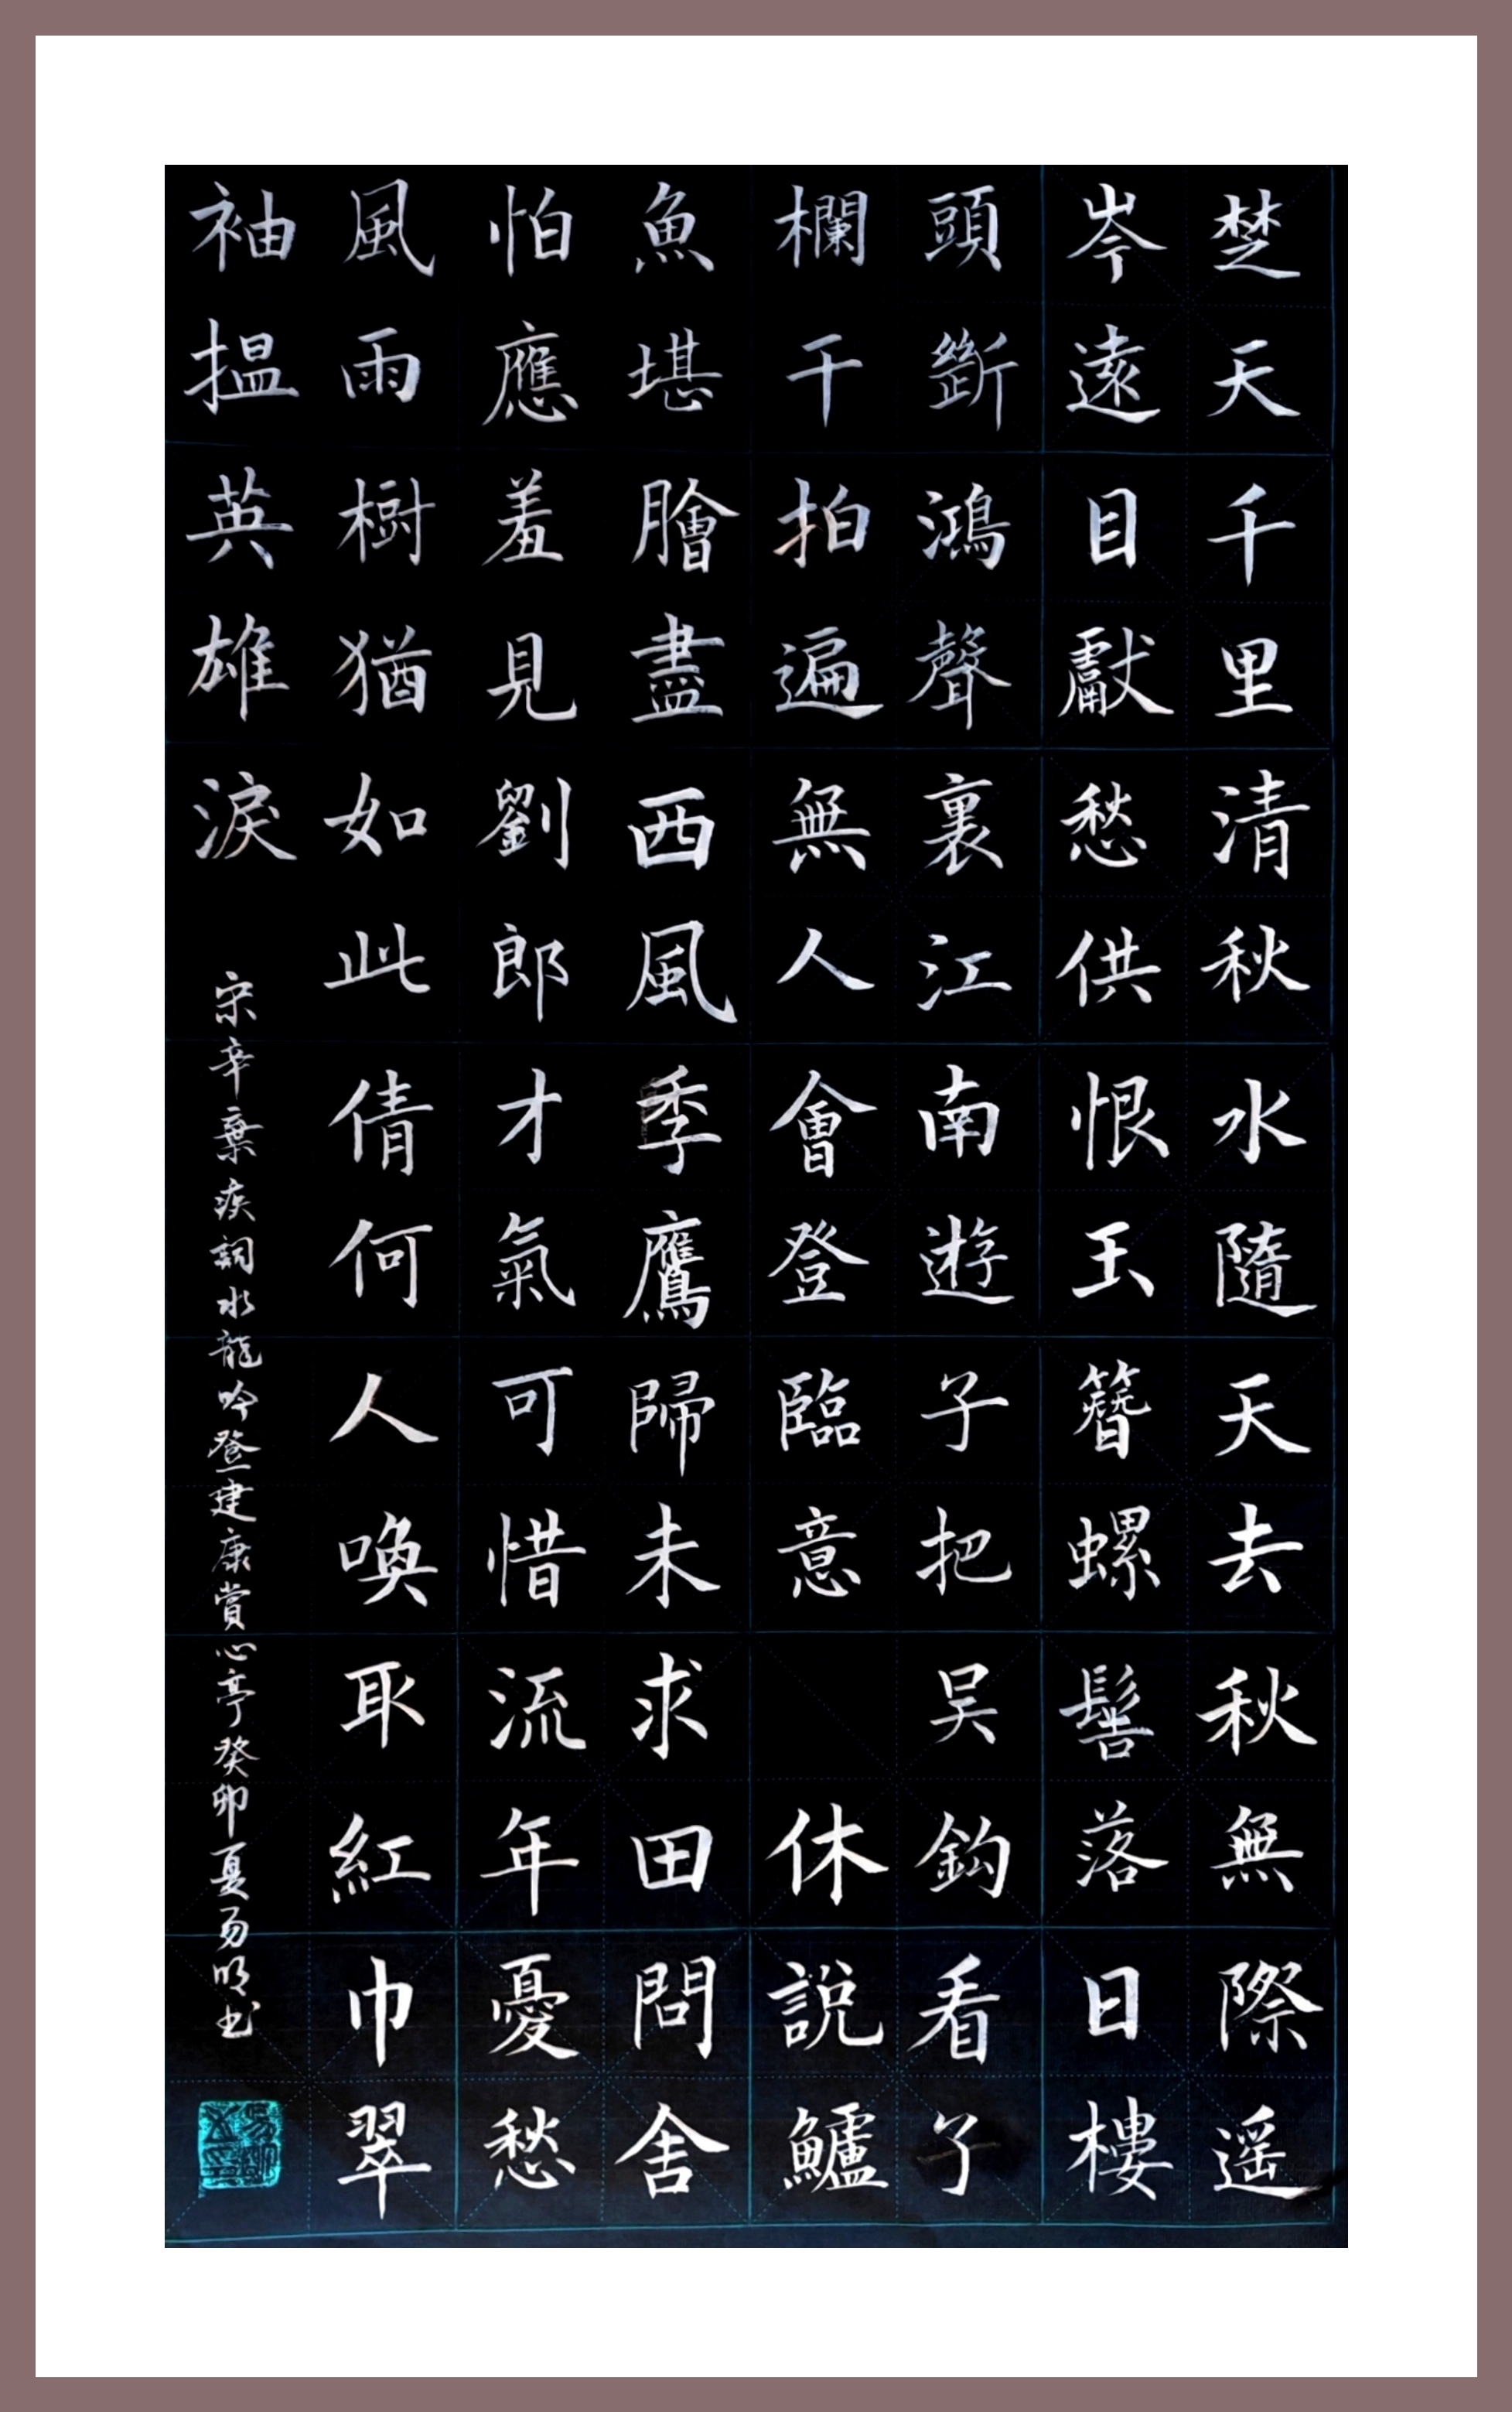 楚天千里清秋水隨天去秋無際遥
岑遠目獻愁供恨玉簪螺髻落日樓
頭斷鴻聲裏江南遊子把吴鈎看了
欄干拍遍無人會登臨意 休說鱸
魚堪膾盡西風季鷹歸未求田問舍
怕應羞見劉郎才氣可惜流年憂愁
風雨樹猶如此倩何人喚取紅巾翠
袖搵英雄淚
宋辛棄疾詞水龍吟登建康賞心亭癸卯夏易明书